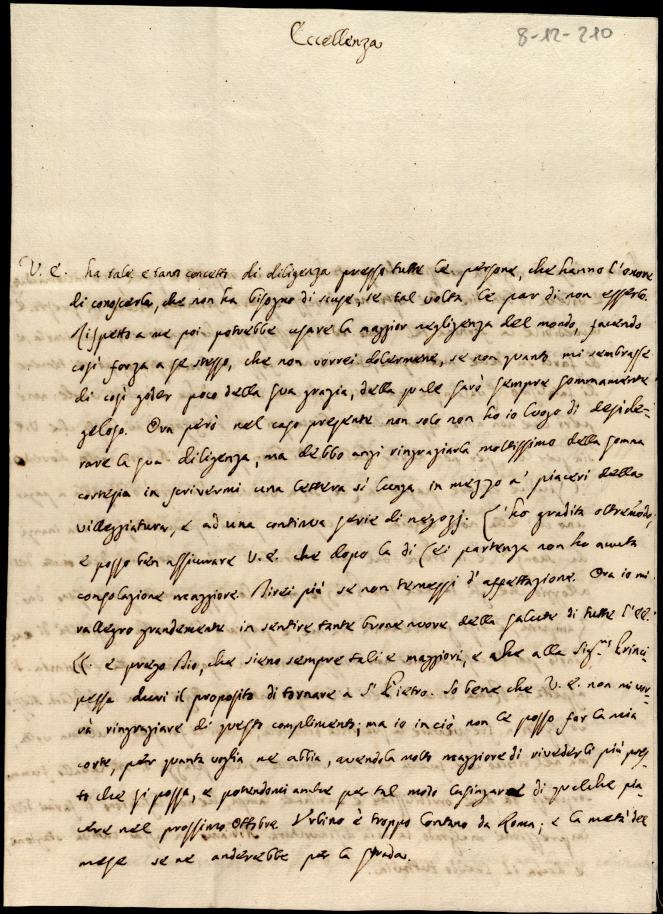 Eccellenza
8-12-210
V. E. ha tale e tanto concetto di diligenza presso tutte le persone, che hanno l'onore
di conoscerla, che non ha bisogno di scuse, se tal volta le par di non esserlo.
Rispetto a me poi potrebbe usare la maggior negligenza del mondo, facendo
così forza a se stesso, che non vorrei dolermene, se non quanto mi sembrasse
di così goder poco della sua grazia, della quale sarò sempre sommamente
geloso. Ora però nel caso presente non solo non ho io luogo di deside=
rare la sua diligenza, ma debbo anzi ringraziarla moltissimo della somma
cortesia in scrivermi una lettera sì lunga in mezzo a' piaceri della
villeggiatura, e ad una continua serie di negozj. L'ho gradita oltremodo,
e posso ben assicurare V. E. che dopo la di Lei partenza non ho avuta
consolazione maggiore. Direi più se non temessi d'affettazione. Ora io mi
rallegro grandemente in sentire tante buone nuove della salute di tutte l'EE.
LL. e prego Dio, che sieno sempre tali e maggiori, e che alla Sig.ra Princi=
pessa duri il proposito di tornare a S. Pietro. So bene che V. E. non mi vor=
rà ringraziare di questo complimento; ma io in ciò non le posso far la mia
corte, per quanta voglia ne abbia, avendola molto maggiore di rivederli più pres=
to che si possa, e potendomi anche per tal modo lusingare di qualche pia=
cere nel prossimo Ottobre. Urbino è troppo lontano da Roma; e la metà del
mese se ne anderebbe per la strada.